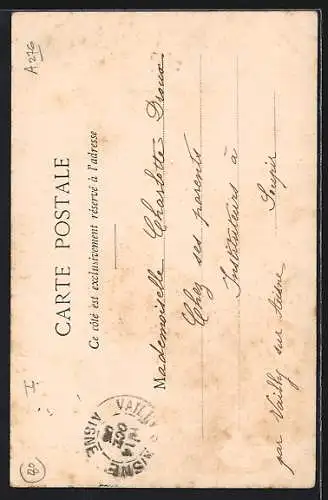 A276
CARTE POSTALE
Ce côté est exclusivement réservé à l'adresse
Mademoiselle Charlotte
Chez ses parents
Instituteurs à
Soupir
par Vailly sur Aisne
VAILLY
AISNE
14
OCT
AISNE
80